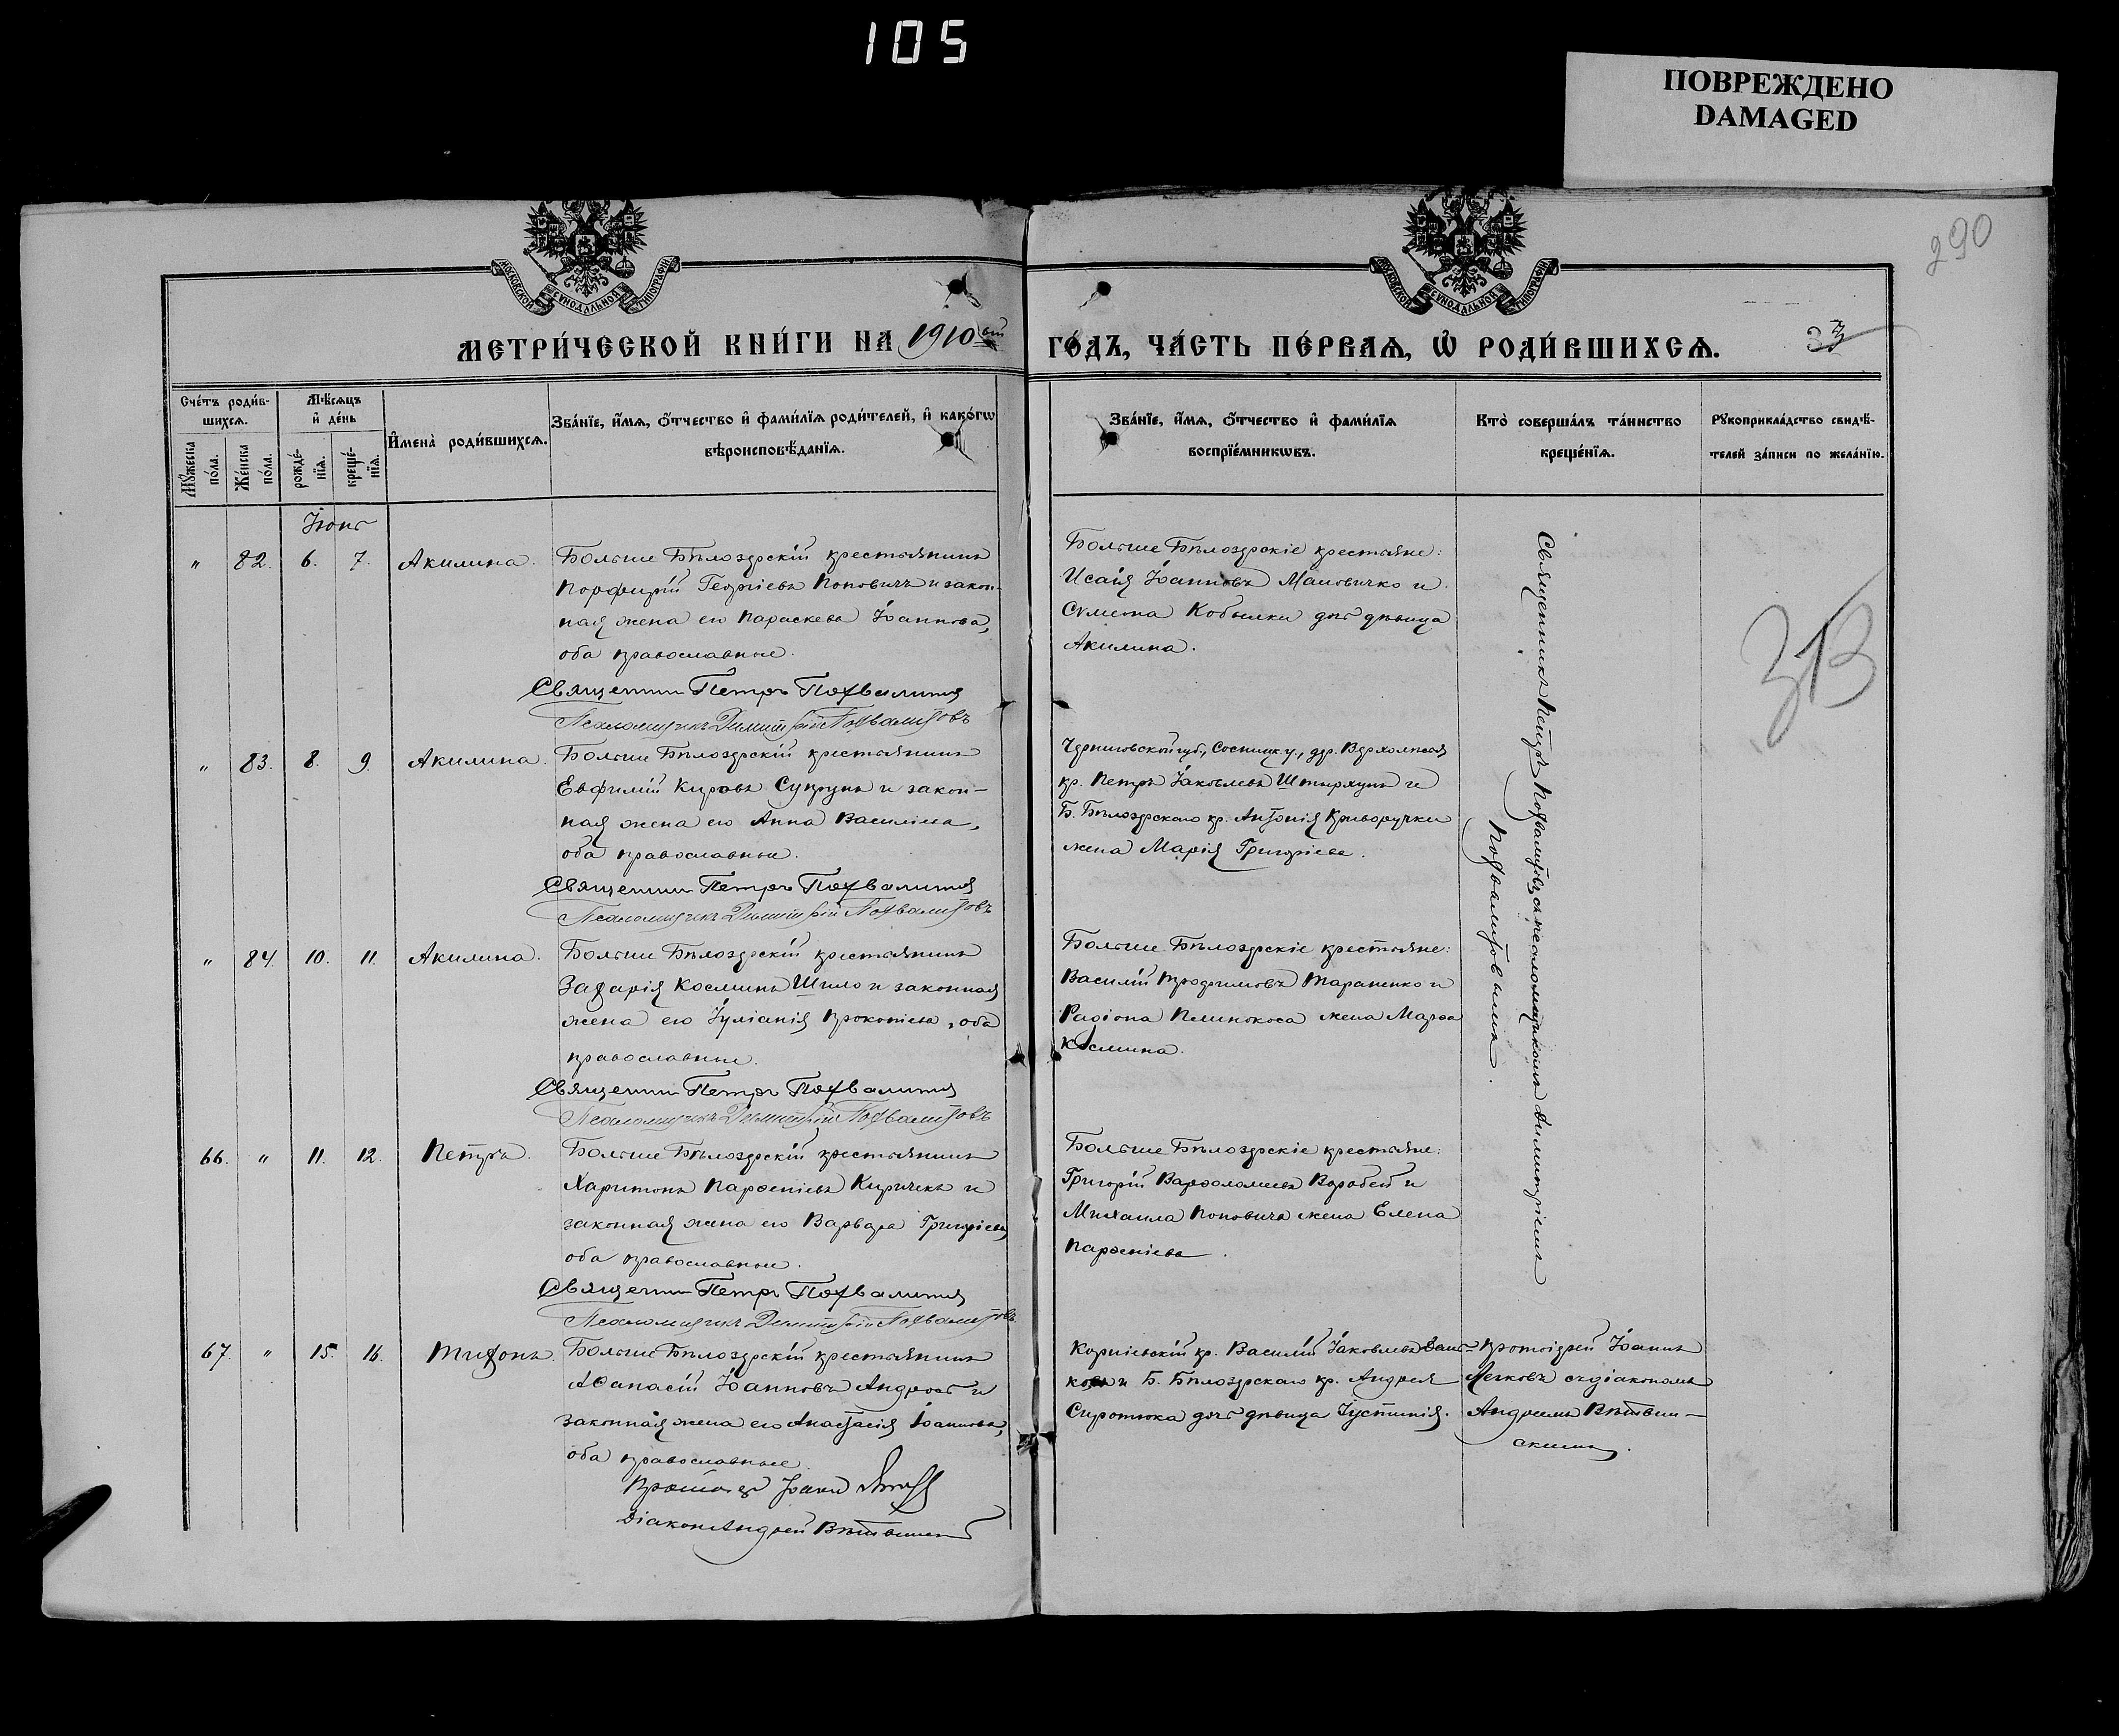 105
ПОВРЕЖДЕНО
DAMAGED
290
МОСКОВСКОЙ СѴНОДАЛЬНОЙ ТИПОГРАФІИ
МОСКОВСКОЙ СѴНОДАЛЬНОЙ ТИПОГРАФІИ
МЕТРИ́ЧЕСКОЙ КНИ́ГИ НА 1910 ый ГО́ДЪ, ЧА́СТЬ ПЕ́РВАѦ, Ѡ҆ РОДИ́ВШИХСѦ.
Сче́тъ роди́в-
шихсѧ.
Мꙋ́жеска по́ла.
Же́нска по́ла.
Мѣ́сѧцъ
и҆ де́нь
рожде́-
нїѧ.
креще́-
нїѧ.
И҆мена̀ роди́вшихсѧ.
Зва́нїе, и҆́мѧ, ѻ҆́тчество и҆ фами́лїѧ роди́телей, и҆ како́гѡ
вѣроисповѣ́данїѧ.
Зва́нїе, и҆́мѧ, ѻ҆́тчество и҆ фами́лїѧ
воспрїе́мникѡвъ.
Кто̀ соверша́лъ та́инство
креще́нїѧ.
Рꙋкоприкла́дство свидѣ́-
телей за́писи по жела́нїю.
Іюнь
" 82. 6. 7. Акилина.
Больше Бѣлозерскій крестьянинъ
Порфирій Георгіевъ Поповичъ и закон-
ная жена его Параскева Іоаннова,
оба православные.
Священник Петръ Похвалитов
Псаломщикъ Димитрій Похвалитовъ
Больше Бѣлозерскіе крестьяне:
Исаія Іоанновъ Мамовичко и
Сумеона Кобылки дочь дѣвица
Акилина.
" 83. 8. 9. Акилина.
Больше Бѣлозерскій крестьянинъ
Евфимій Кировъ Супрунъ и закон-
ная жена его Анна Василіева,
оба православные.
Священник Петръ Похвалитов
Псаломщикъ Димитрій Похвалитовъ
Черниговской губ., Сосниц. у., дер.
кр. Петръ Іаковлевъ и
Б. Бѣлозерскаго кр. Антонія Криворучки
жена Марія Григоріева.
" 84. 10. 11. Акилина.
Больше Бѣлозерскій крестьянинъ
Захарія Косминъ Шило и законная
жена его Іуліанія Прокопіева, оба
православные.
Священник Петръ Похвалитов
Псаломщикъ Димитрій Похвалитовъ
Больше Бѣлозерскіе крестьяне:
Василій Трофимовъ Тараненко и
Радіона жена Марѳа
Космина.
66. " 11. 12. Петръ.
Больше Бѣлозерскій крестьянинъ
Харитонъ Парѳеніевъ Киричекъ и
законная жена его Варвара Григоріева
оба православные.
Священник Петръ Похвалитов
Псаломщикъ Димитрій Похвалитовъ
Больше Бѣлозерскіе крестьяне:
Григорій Варѳоломеевъ Воробей и
Михаила Поповича жена Елена
Парѳеніева.
Священникъ Петръ Похвалитовъ съ псаломщикомъ Димитріемъ
Похвалитовымъ.
67. " 15. 16. Тихонъ.
Больше Бѣлозерскій крестьянинъ
Аѳанасій Іоанновъ Андрось и
законная жена его Анастасія Іоаннова,
оба православные.
Іоанн
Діаконъ Андрей
кр. Василій Іаковлевъ
и Б. Бѣлозерскаго кр. Андрея
Сиротюка дочь дѣвица Іустинія.
Протоіерей Іоаннъ
съ діакономъ
Андреемъ Вѣтвин-
скимъ.